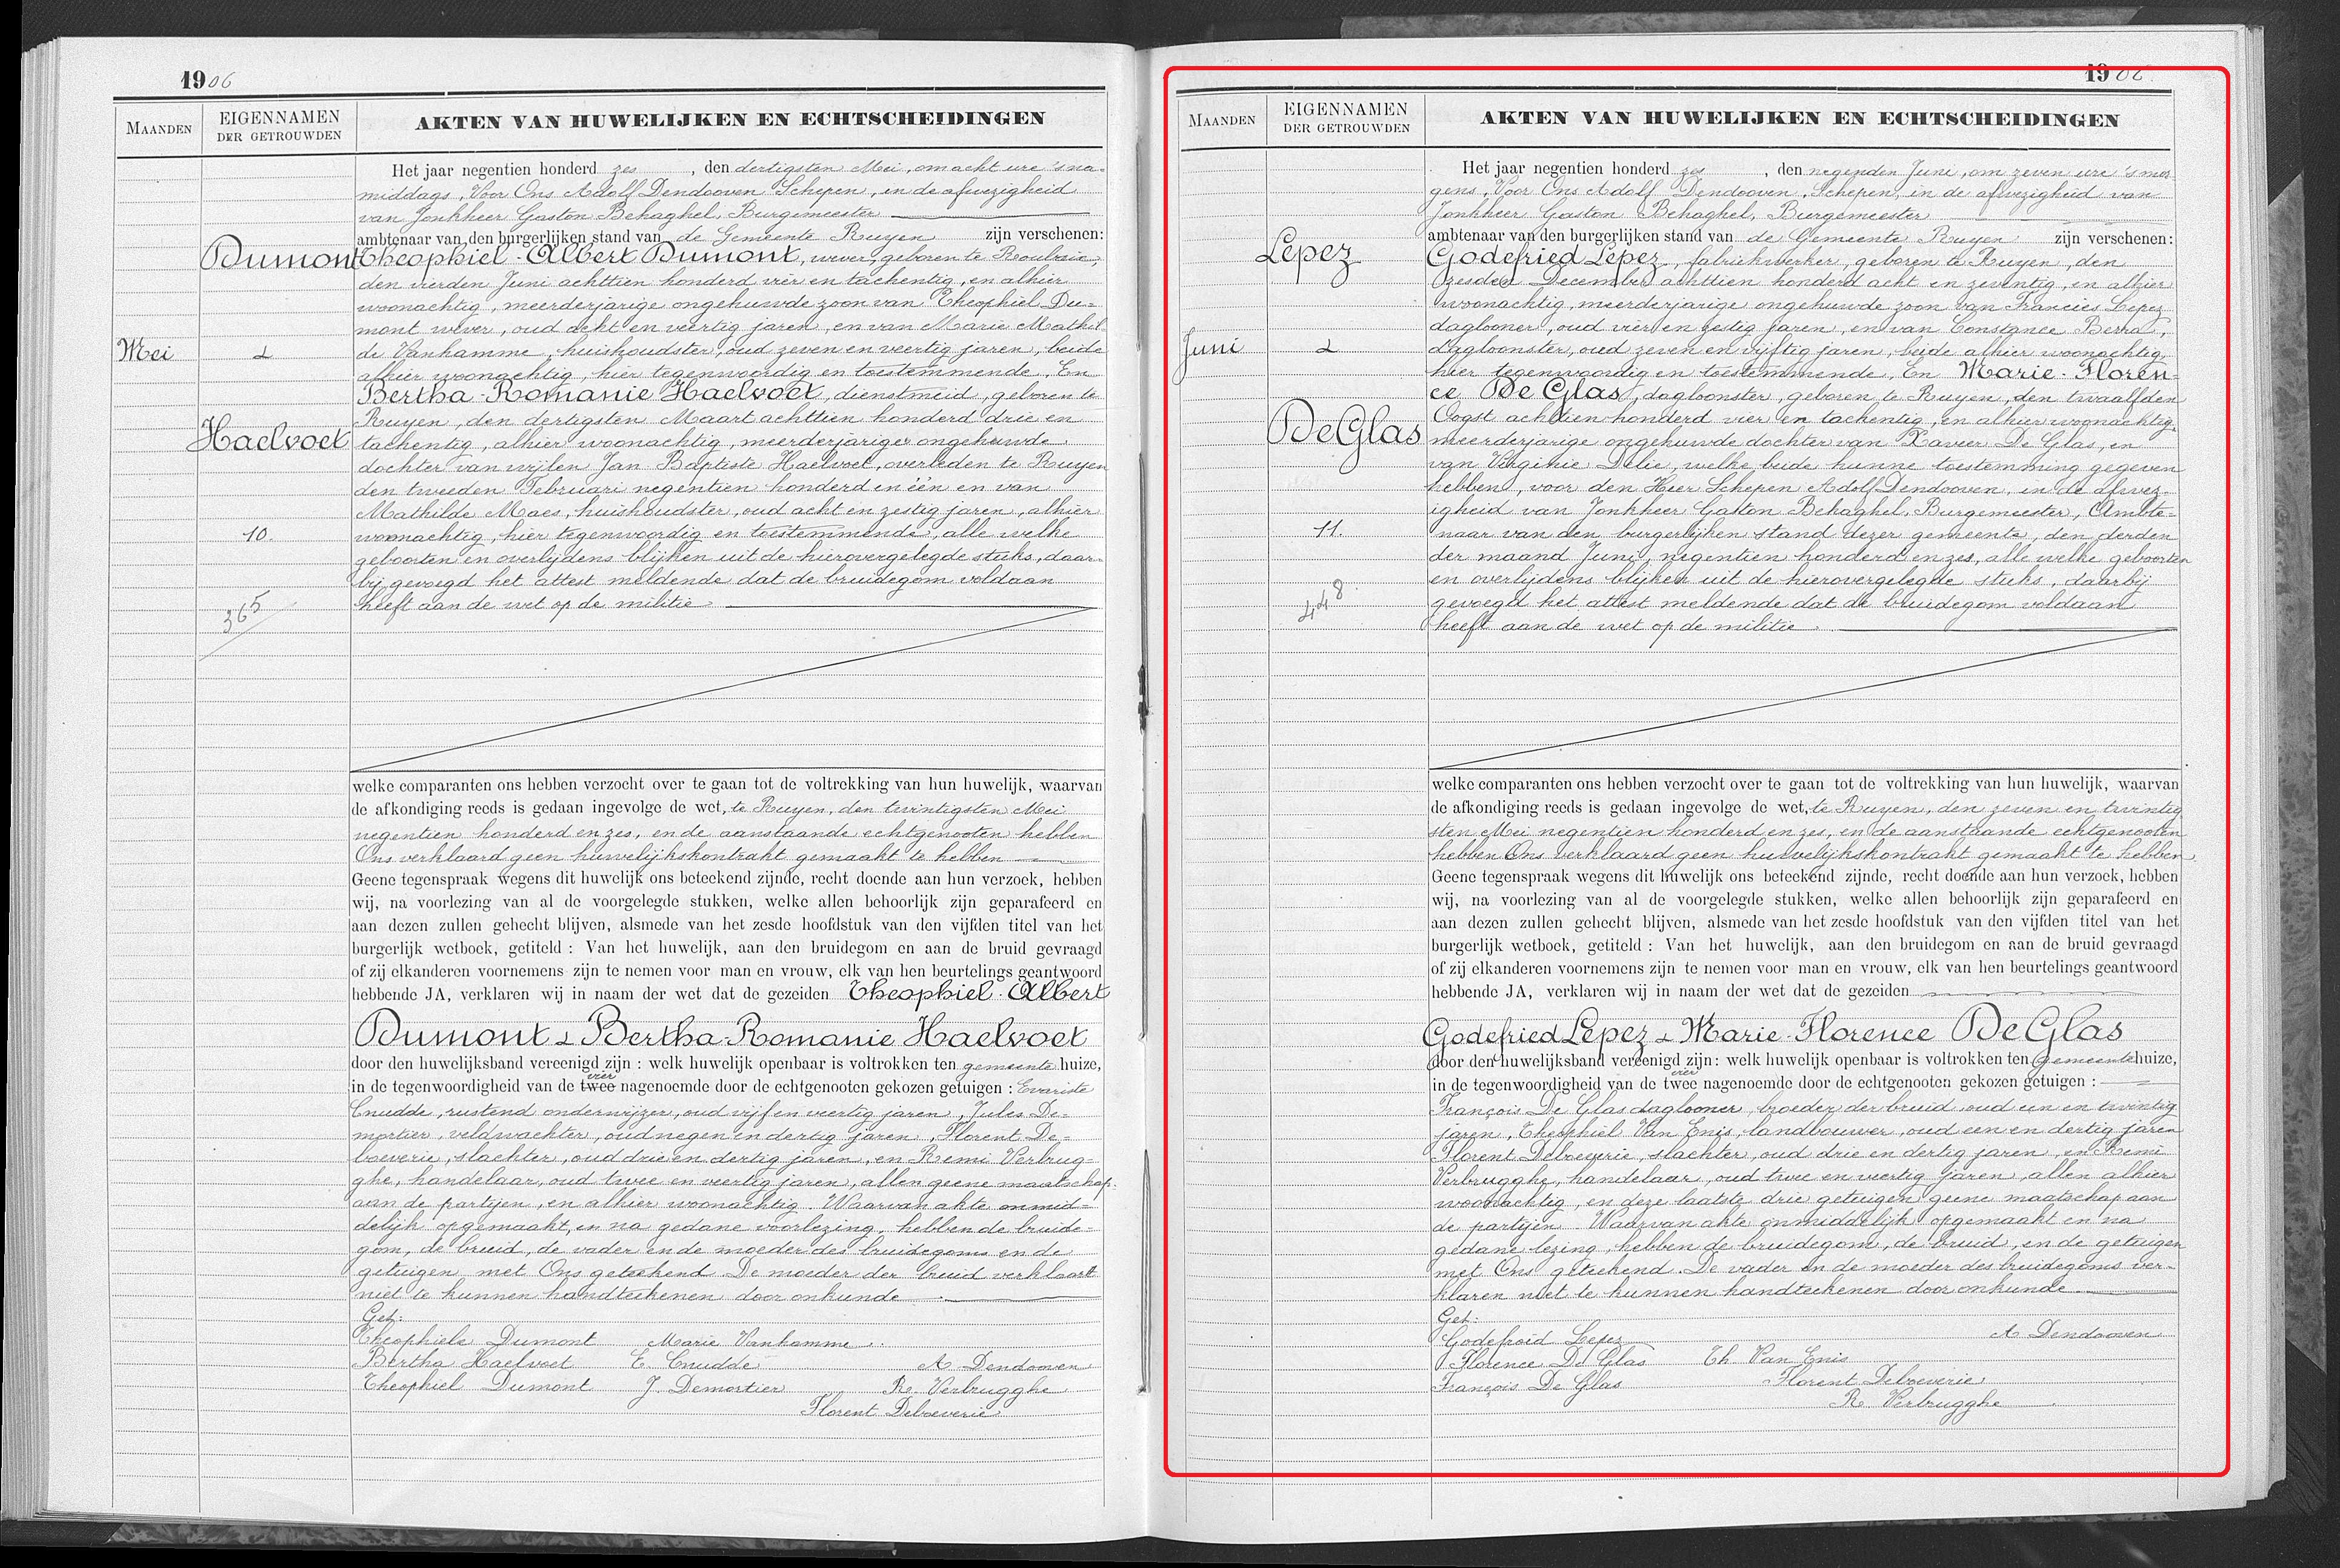 1906
MAANDEN
EIGENNAMEN
DER GETROUWDEN
AKTEN VAN HUWELIJKEN EN ECHTSCHEIDINGEN
Het jaar negentien honderd zes, den dertigsten Mei, om acht ure 's na-
middags, Voor Ons Adolf Dendooven Schepen, in de afwezigheid
van Jonkheer Gaston Behaghel, Burgemeester
ambtenaar van den burgerlijken stand van de Gemeente Ruyen zijn verschenen:
Dumont
Theophiel-Albert Dumont, wever, geboren te Roubaix,
den vierden Juni achttien honderd vier en tachentig, en alhier
woonachtig, meerderjarige ongehuwde zoon van Theophiel Du=
mont wever, oud acht en veertig jaren, en van Marie Mathil
Mei
&
de Vanhamme, huishoudster, oud zeven en veertig jaren, beide
alhier woonachtig, hier tegenwoordig en toestemmende. En
Bertha-Romanie Haelvoet, dienstmeid, geboren te
Ruyen, den dertigsten Maart achttien honderd drie en
Haelvoet
tachentig, alhier woonachtig, meerderjarige ongehuwde
dochter van wijlen Jan Baptiste Haelvoet, overleden te Ruyen
den tweeden Februari negentien honderd en één en van
Mathilde Maes, huishoudster, oud acht en zestig jaren, alhier
10.
woonachtig, hier tegenwoordig en toestemmende, alle welke
geboorten en overlijdens blijken uit de hierovergelegde stuks, daar-
bij gevoegd het attest meldende dat de bruidegom voldaan
365
heeft aan de wet op de militie
welke comparanten ons hebben verzocht over te gaan tot de voltrekking van hun huwelijk, waarvan
de afkondiging reeds is gedaan ingevolge de wet, te Ruyen, den twintigsten Mei
negentien honderd en zes, en de aanstaande echtgenooten hebben
Ons verklaard geen huwelijkskontrakt gemaakt te hebben
Geene tegenspraak wegens dit huwelijk ons beteekend zijnde, recht doende aan hun verzoek, hebben
wij, na voorlezing van al de voorgelegde stukken, welke allen behoorlijk zijn geparafeerd en
aan dezen zullen gehecht blijven, alsmede van het zesde hoofdstuk van den vijfden titel van het
burgerlijk wetboek, getiteld : Van het huwelijk, aan den bruidegom en aan de bruid gevraagd
of zij elkanderen voornemens zijn te nemen voor man en vrouw, elk van hen beurtelings geantwoord
hebbende JA, verklaren wij in naam der wet dat de gezeiden Theophiel-Albert
Dumont & Bertha-Romanie Haelvoet
door den huwelijksband vereenigd zijn : welk huwelijk openbaar is voltrokken ten gemeente huize,
in de tegenwoordigheid van de twee vier nagenoemde door de echtgenooten gekozen getuigen : Evariste
Cnudde, rustend onderwijzer, oud vijf en veertig jaren, Jules De=
mortier, veldwachter, oud negen en dertig jaren, Florent De=
boeverie, slachter, oud drie en dertig jaren, en Remi Verbrug=
ghe, handelaar, oud twee en veertig jaren, allen geene maatschap
aan de partijen, en alhier woonachtig. Waarvan akte onmid=
delijk opgemaakt, en na gedane voorlezing, hebben de bruide=
gom, de bruid, de vader en de moeder des bruidegoms en de
getuigen met Ons geteekend. De moeder der bruid verklaart
niet te kunnen handteekenen door onkunde.
Get:
Theophiele Dumont Marie Vanhamme.
Bertha Haelvoet E. Cnudde A. Dendooven
Theophiel Dumont J. Demortier R. Verbrugghe
Florent Deboeverie
1906
MAANDEN
EIGENNAMEN
DER GETROUWDEN
AKTEN VAN HUWELIJKEN EN ECHTSCHEIDINGEN
Het jaar negentien honderd zes, den negenden Juni, om zeven ure 's mor
gens, Voor Ons Adolf Dendooven, Schepen, in de afwezigheid van
Jonkheer Gaston Behaghel, Burgemeester
ambtenaar van den burgerlijken stand van de Gemeente Ruyen zijn verschenen:
Lepez
Godefried Lepez, fabriekwerker, geboren te Ruyen, den
zesden December achttien honderd acht en zeventig, en alhier
woonachtig, meerderjarige ongehuwde zoon van Francies Lepez
daglooner, oud vier en zestig jaren, en van Constance Berha,
Juni
&
dagloonster, oud zeven en vijftig jaren, beide alhier woonachtig,
hier tegenwoordig en toestemmende. En Marie-Floren-
ce De Glas, dagloonster, geboren te Ruyen, den twaalfden
Oogst achttien honderd vier en tachentig, en alhier woonachtig,
De Glas
meerderjarige ongehuwde dochter van Xavier De Glas, en
van Virginie Delie, welke beide hunne toestemming gegeven
hebben, voor den Heer Schepen Adolf Dendooven, in de afwez-
igheid van Jonkheer Gaston Behaghel, Burgemeester, Ambte=
11.
naar van den burgerlijken stand dezer gemeente, den derden
der maand Juni negentien honderd en zes, alle welke geboorten
en overlijdens blijken uit de hierovergelegde stuks, daarbij
448.
gevoegd het attest meldende dat de bruidegom voldaan
heeft aan de wet op de militie.
welke comparanten ons hebben verzocht over te gaan tot de voltrekking van hun huwelijk, waarvan
de afkondiging reeds is gedaan ingevolge de wet, te Ruyen, den zeven en twintig
sten Mei negentien honderd en zes, en de aanstaande echtgenooten
hebben Ons verklaard geen huwelijkskontrakt gemaakt te hebben
Geene tegenspraak wegens dit huwelijk ons beteekend zijnde, recht doende aan hun verzoek, hebben
wij, na voorlezing van al de voorgelegde stukken, welke allen behoorlijk zijn geparafeerd en
aan dezen zullen gehecht blijven, alsmede van het zesde hoofdstuk van den vijfden titel van het
burgerlijk wetboek, getiteld : Van het huwelijk, aan den bruidegom en aan de bruid gevraagd
of zij elkanderen voornemens zijn te nemen voor man en vrouw, elk van hen beurtelings geantwoord
hebbende JA, verklaren wij in naam der wet dat de gezeiden
Godefried Lepez & Marie-Florence De Glas
door den huwelijksband vereenigd zijn: welk huwelijk openbaar is voltrokken ten gemeentehuize,
in de tegenwoordigheid van de twee vier nagenoemde door de echtgenooten gekozen getuigen :
François De Glas daglooner, broeder der bruid oud een en twintig
jaren, Theophiel Van Enis, landbouwer, oud een en dertig jaren
Florent Deboeverie, slachter, oud drie en dertig jaren, en Remi
Verbrugghe, handelaar, oud twee en veertig jaren, allen alhier
woonachtig, en deze laatste drie getuigen geene maatschap aan
de partijen. Waarvan akte onmiddelijk opgemaakt en na
gedane lezing, hebben de bruidegom, de bruid, en de getuigen
met Ons geteekend. De vader en de moeder des bruidegoms ver-
klaren niet te kunnen handteekenen door onkunde.
Get:
Godefroid Lepez A. Dendooven
Florence De Glas Th. Van Enis
François De Glas Florent Deboeverie
R. Verbrugghe